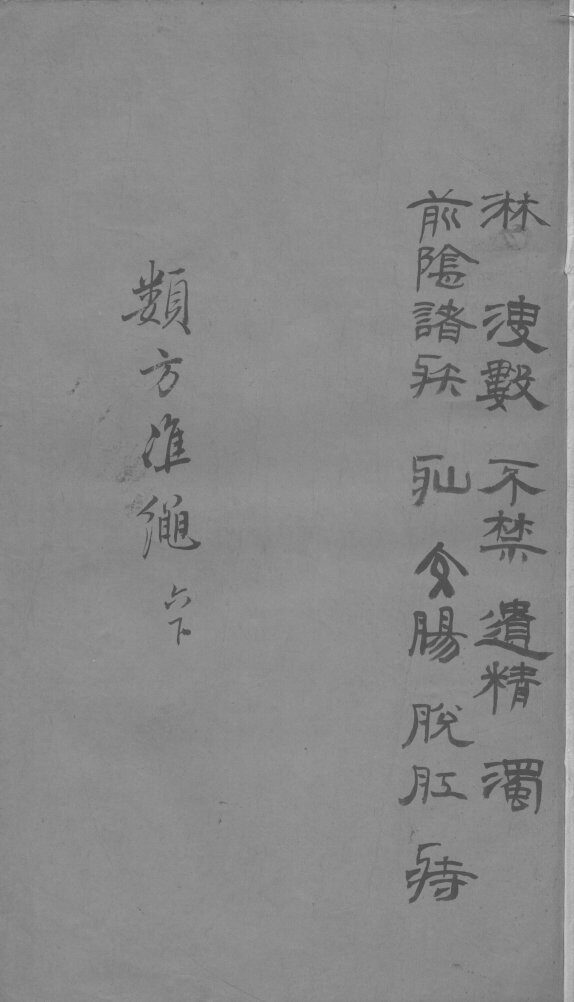 淋 溲數 不禁 遺精 濁
前陰諸疾 疝 交腸 脫肛 痔
類方準繩 六下